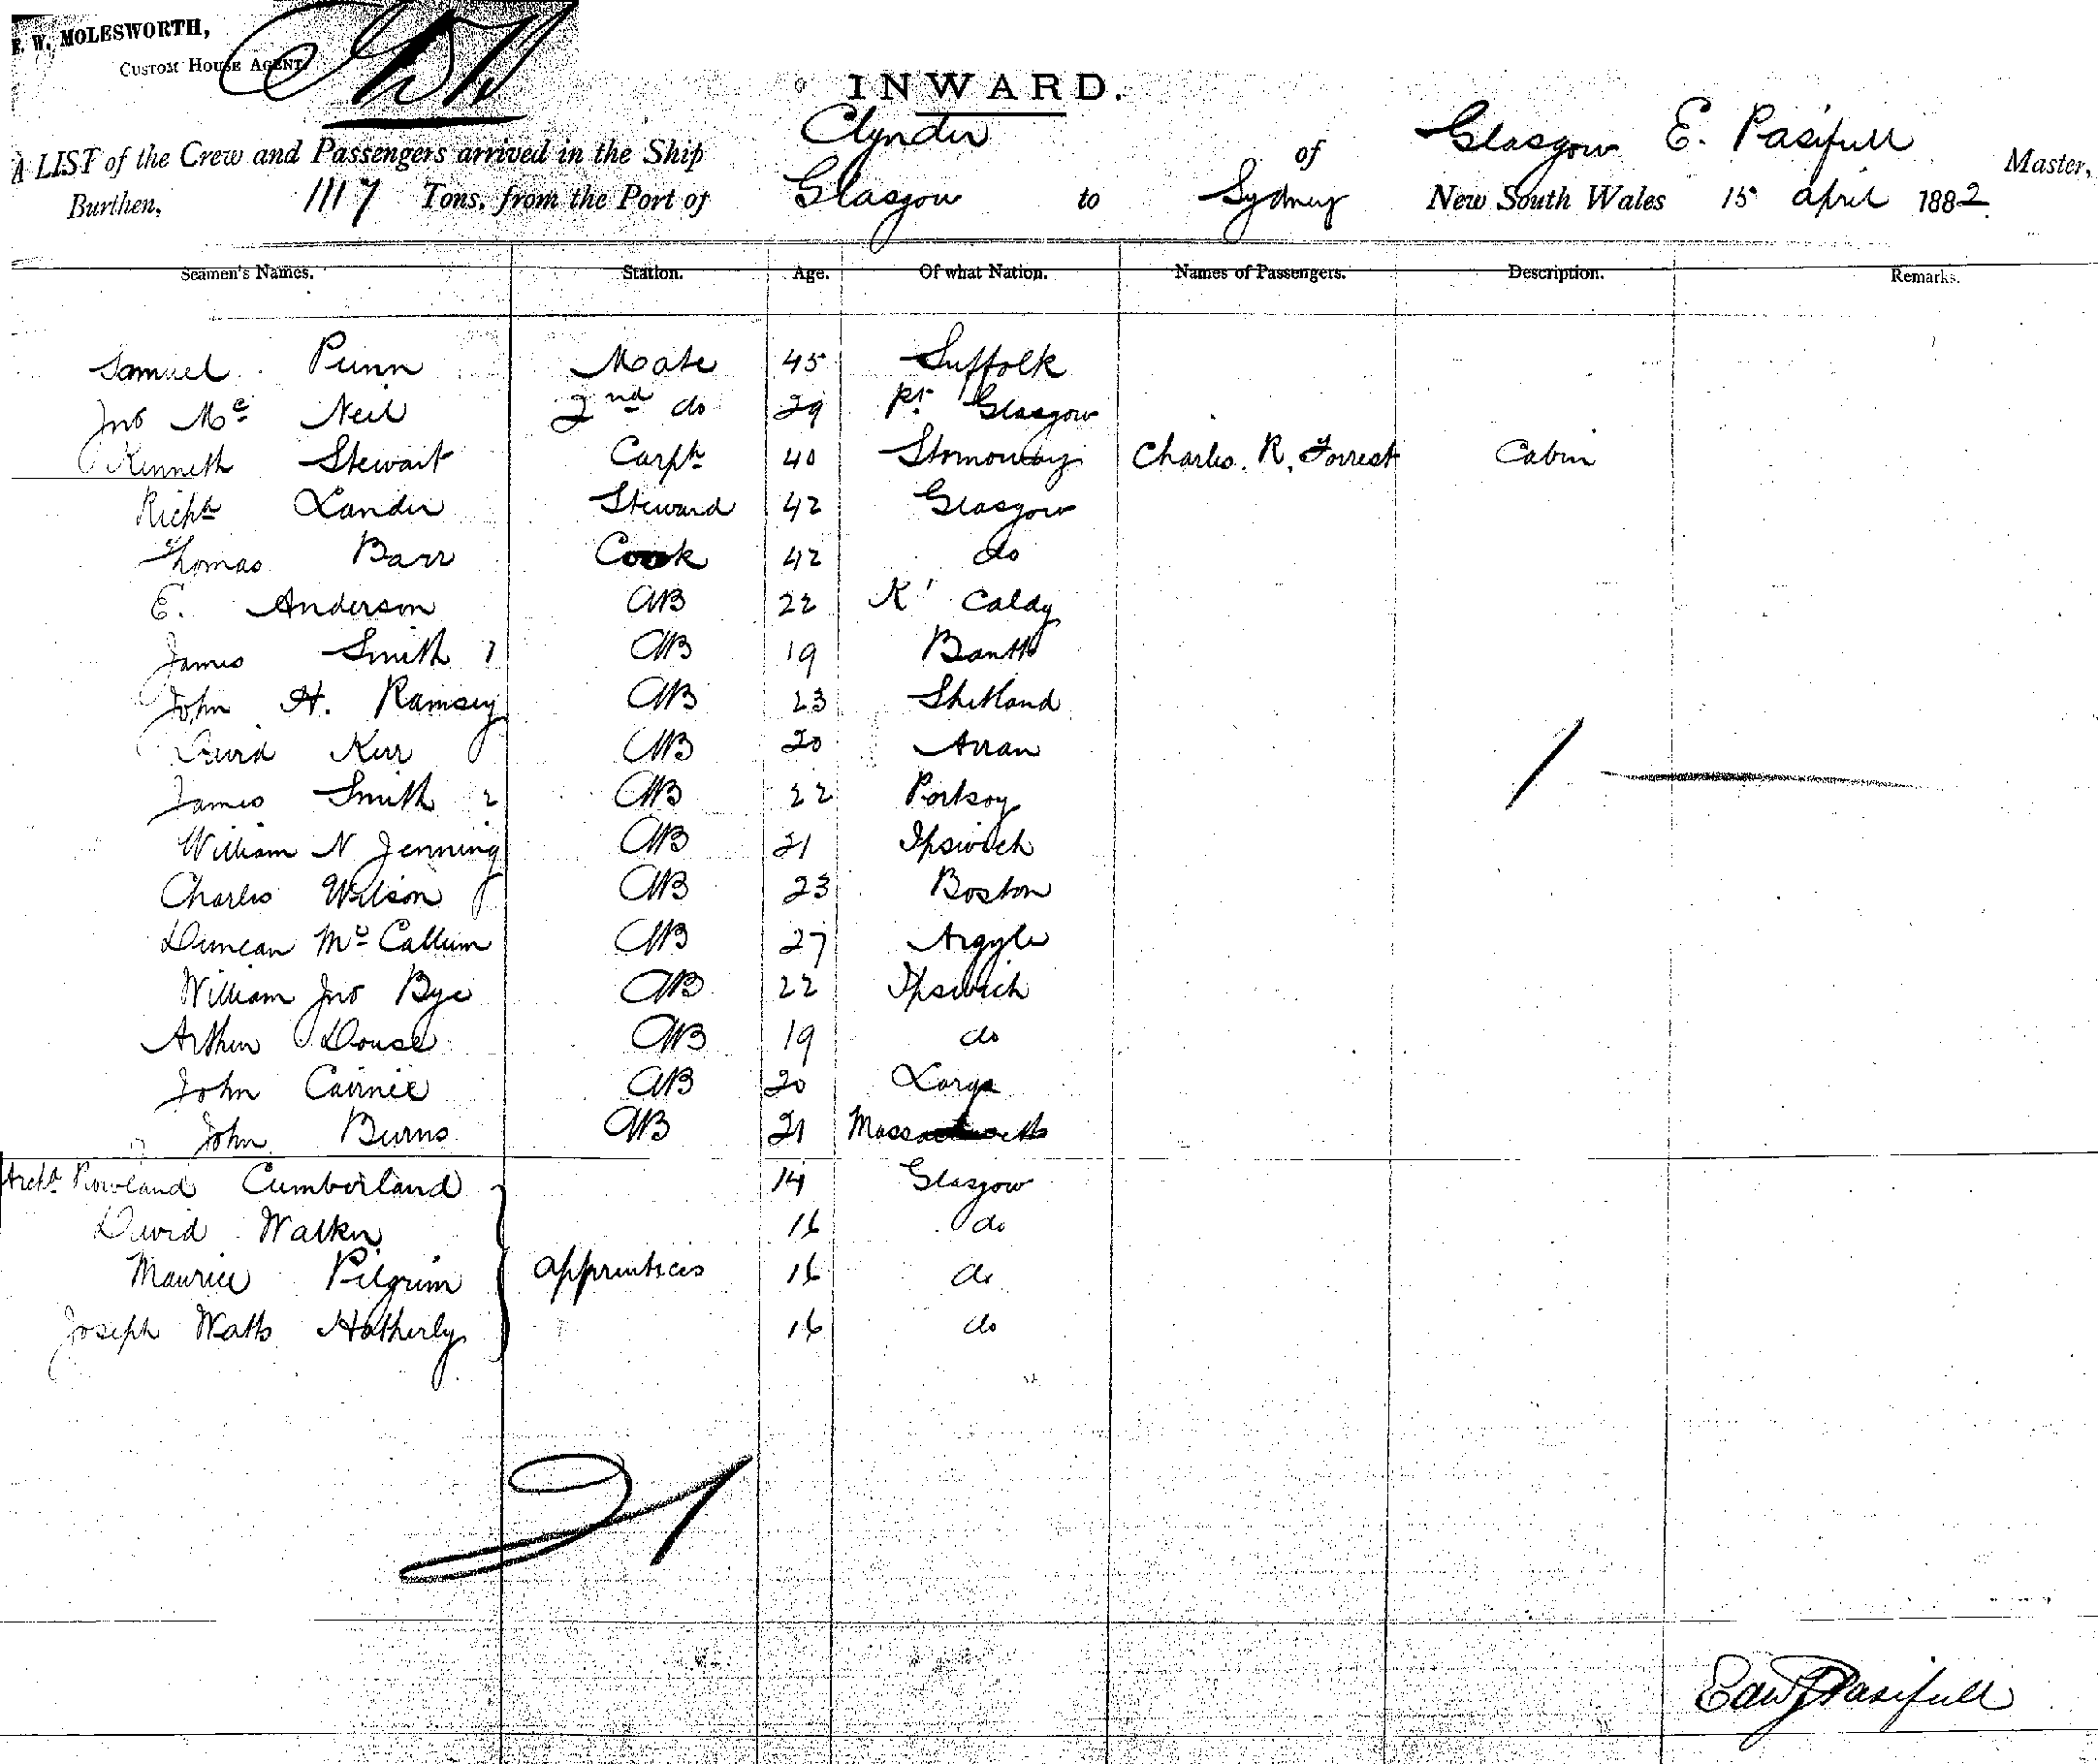 E. W. MOLESWORTH,
CUSTOM HOUSE AGENT
INWARD.
A LIST of the Crew and Passengers arrived in the Ship Clynder of Glasgow E. Pasifull Master,
Burthen, 1117 Tons, from the Port of Glasgow to Sydney New South Wales 15 april 1882
Seamen's Names. Station. Age. Of what Nation. Names of Passengers. Description. Remarks.
Samuel Punn Mate 45 Suffolk
Jno Mc Neil 2nd do 29 Pt Glasgow
Kenneth Stewart Carptr 40 Stornoway Charles. R. Forrest Cabin
Richd Lander Steward 42 Glasgow
Thomas Barr Cook 42 do
E. Anderson AB 22 K' Caldy
James Smith 1 AB 19 Banff
John H. Ramsey AB 23 Shetland
David Kerr AB 20 Arran
James Smith 2 AB 22 Portsoy
William N Jenning AB 21 Ipswich
Charles Wilson AB 23 Boston
Duncan Mc Callum AB 27 Argyle
William Jno Bye AB 22 Ipswich
Arthur Douse AB 19 do
John Cairnie AB 20 Largs
John Burns AB 21 Massachusetts
Archd Rowland Cumberland 14 Glasgow
David Walker 16 do
Maurice Pilgrim apprentices 16 do
Joseph Watts Hatherly 16 do
21
Edwd Pasifull